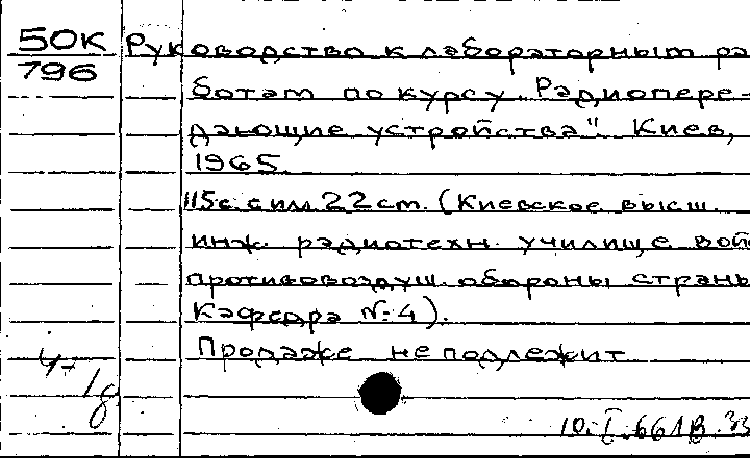 50К
796
Руководство к лабораторным ра
ботам по курсу „Радиопере-
дающие устройства“. Киев,
1965.
115с. с илл. 22 см. (Киевское высш.
инж. радиотехн. училище вой
противовоздуш. обороны страны
Кафедра №4).
Продаже не подлежит
10.I.66